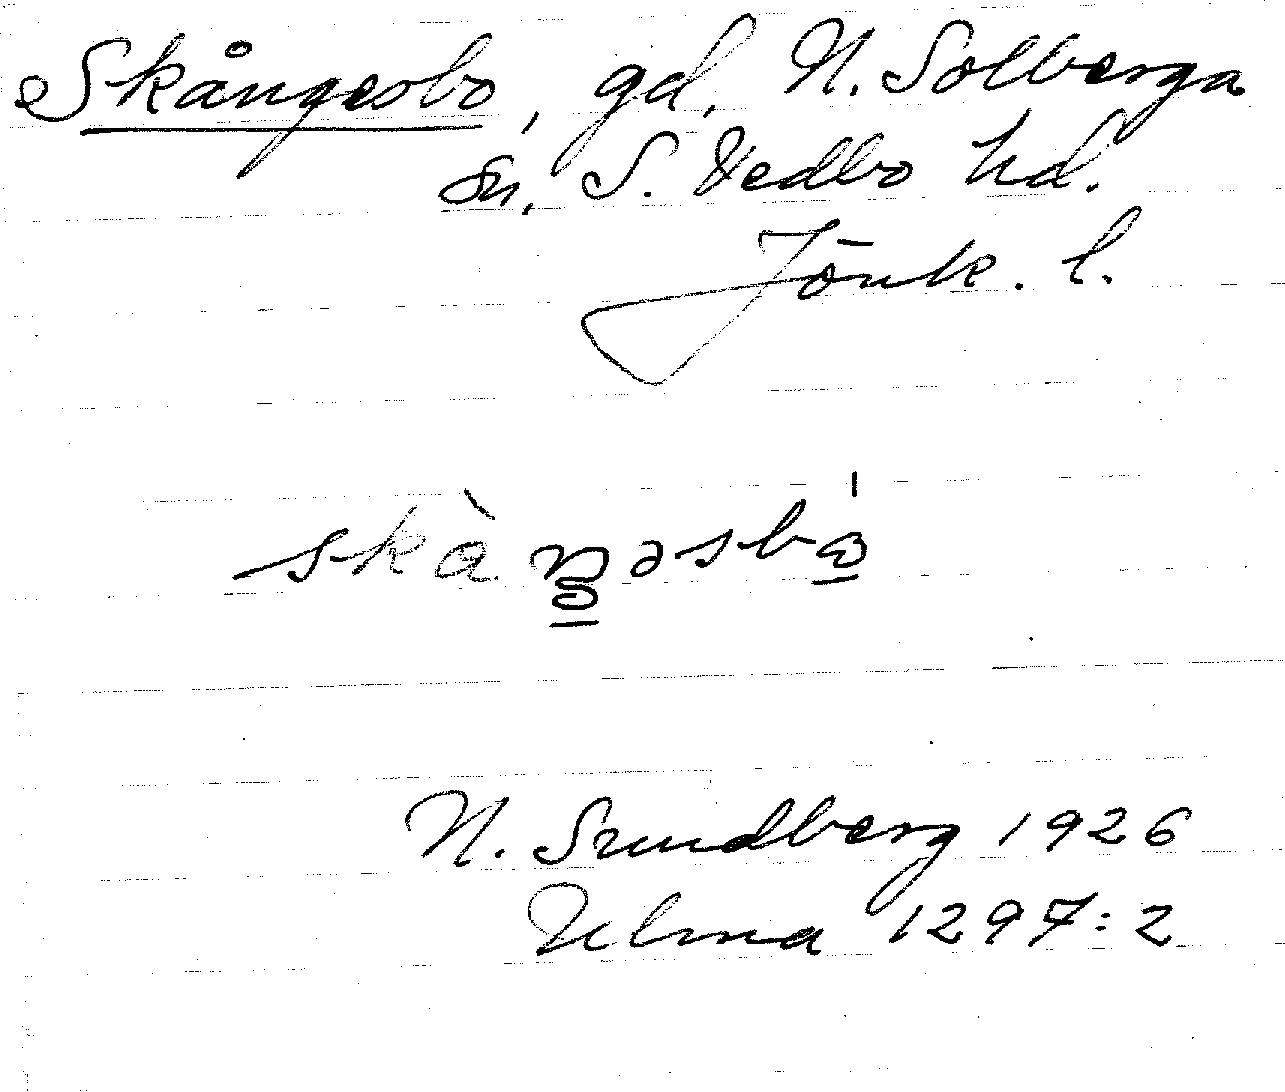 Skångesbo, gd, N. Solberga
sn, S. Vedbo hd.
Jönk. l.
N. Sundberg 1926
Ulma 1297:2